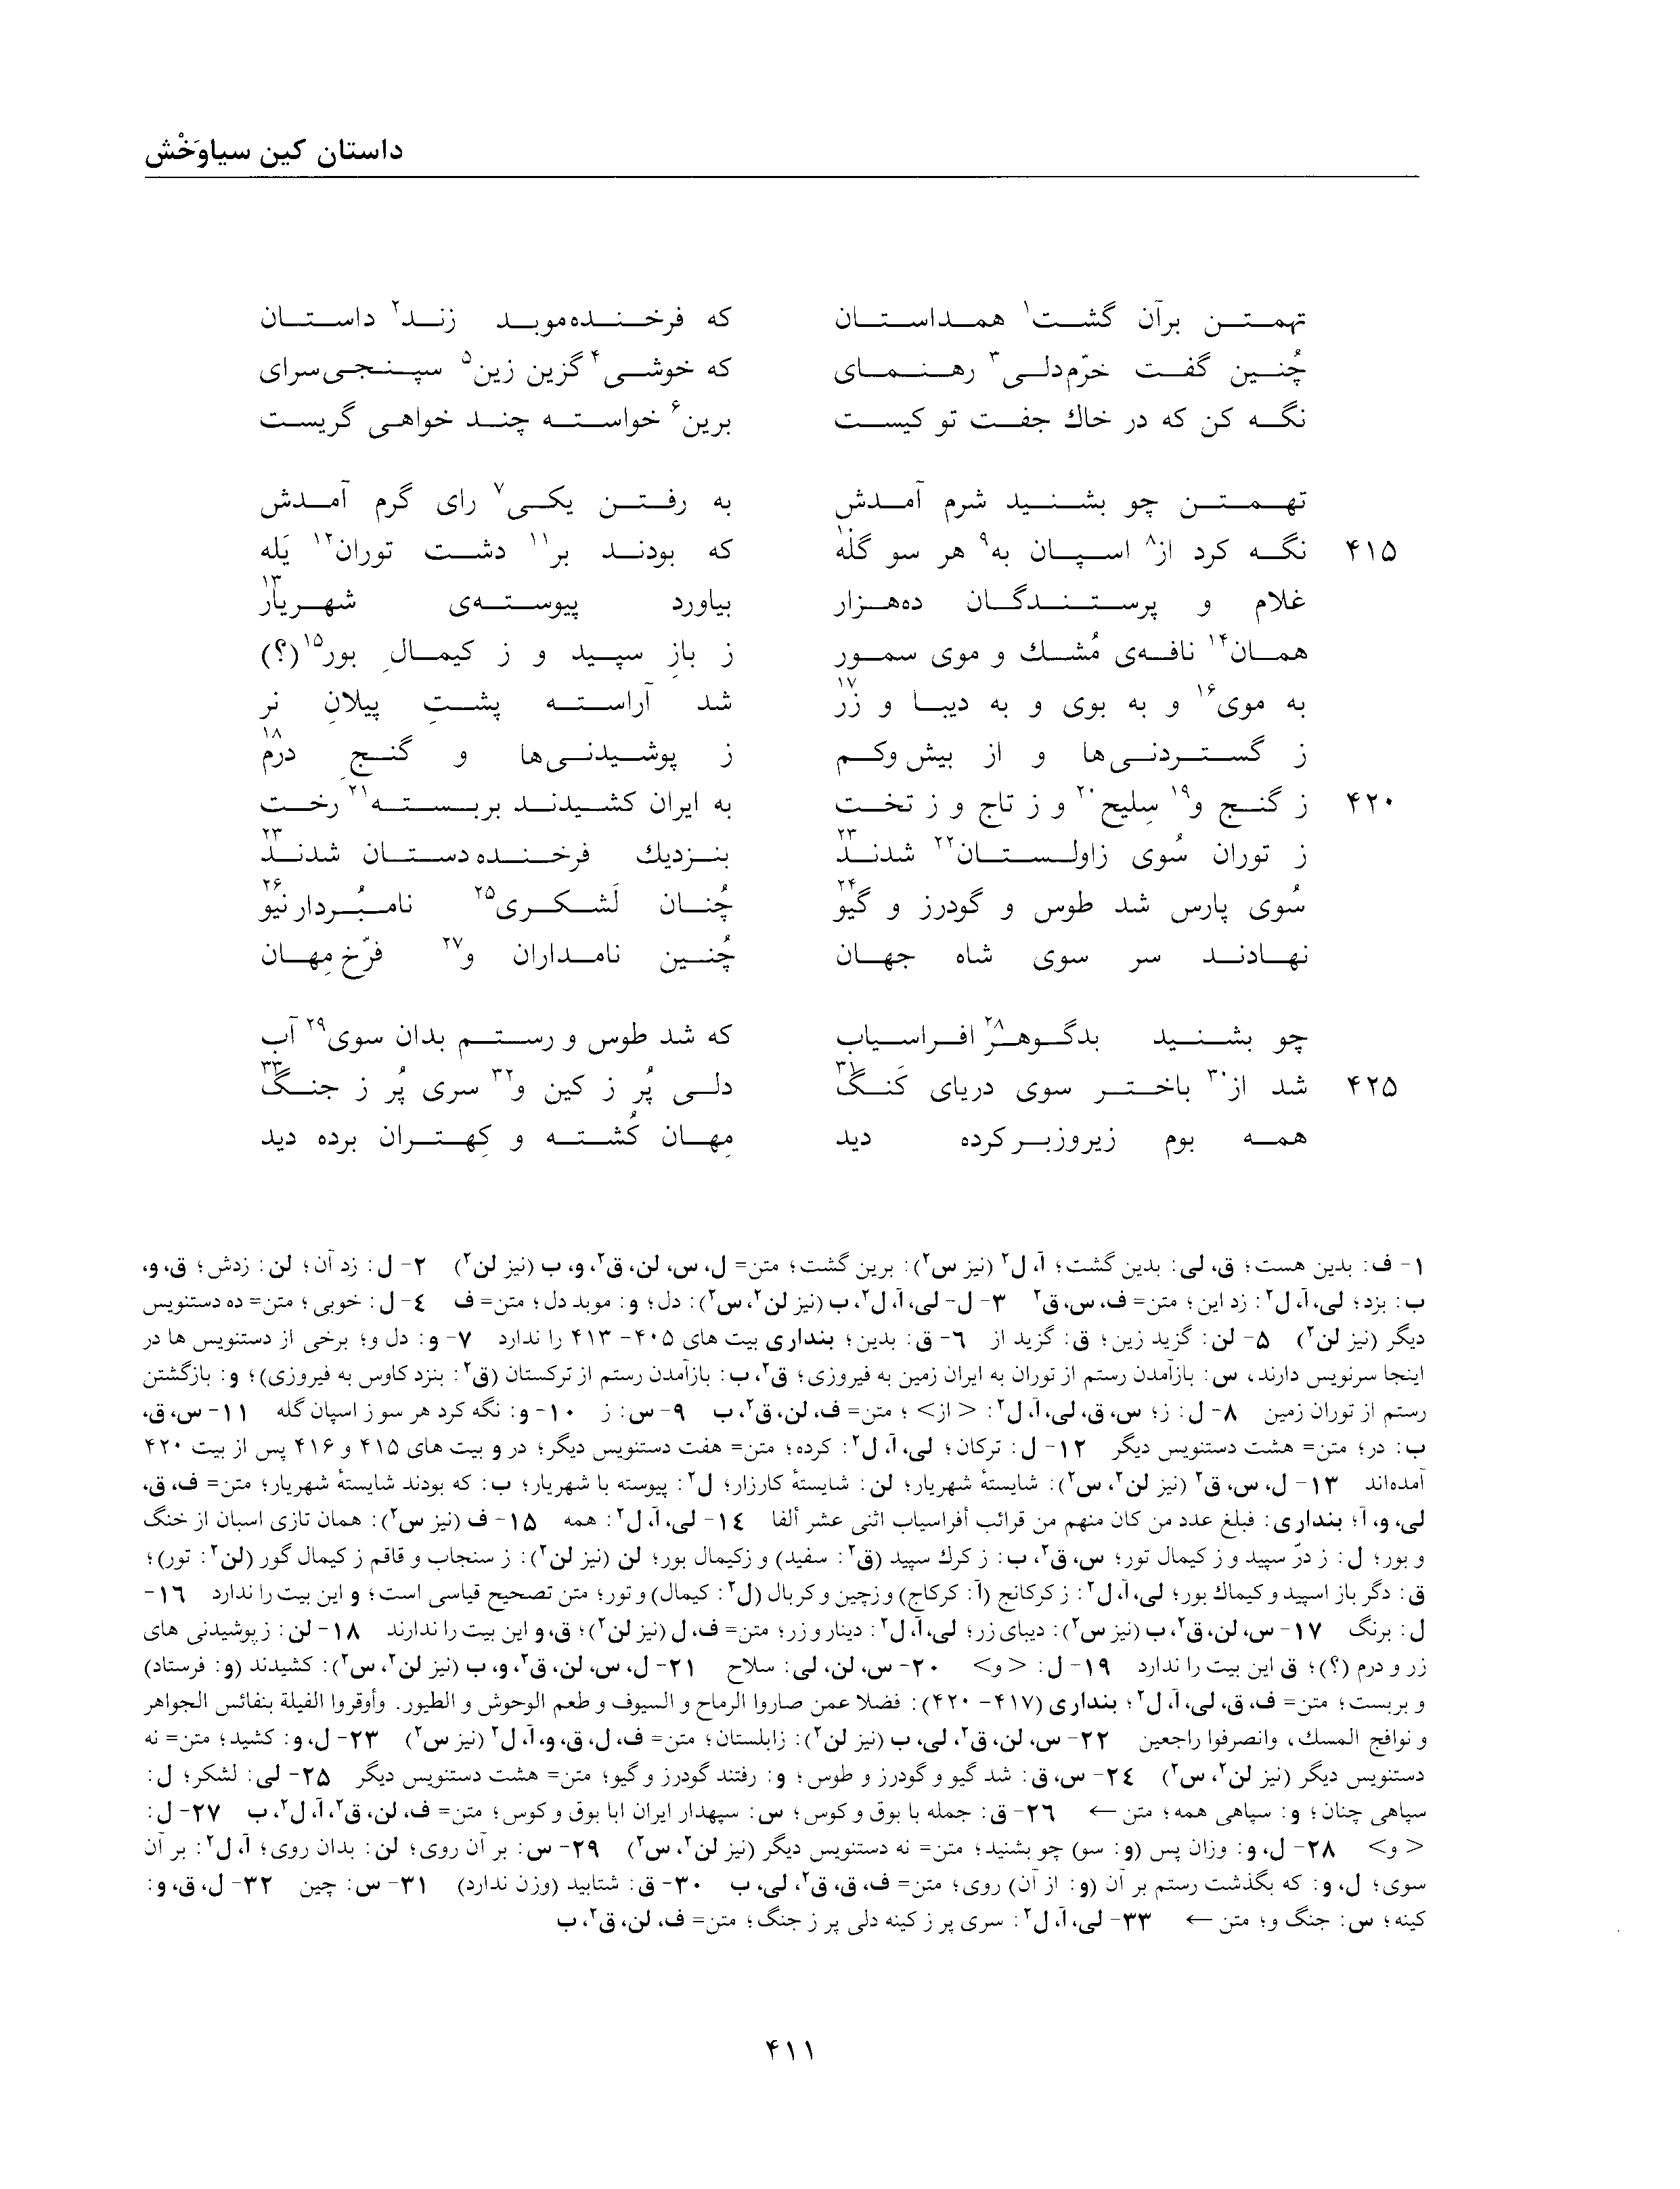 داستان کین سیاوَخْش
تهمتن برآن گشت۱ همداستان که فرخنده‌موبد زند۲ داستان
چُنین گفت خرّم‌دلی۳ رهنمای که خوشی۴ گزین زین۵ سپنجی‌سرای
نگه کن که در خاك جفت تو کیست برین۶ خواسته چند خواهی گریست
تهمتن چو بشنید شرم آمدش به رفتن یکی۷ رای گرم آمدش
۴۱۵ نگه کرد از۸ اسپان به۹ هر سو گله۱۰ که بودند بر۱۱ دشت توران۱۲ یَله
غلام و پرستندگان ده‌هزار بیاورد پیوسته‌ی شهریار۱۳
همان۱۴ نافه‌ی مُشك و موی سمور ز بازِ سپید و ز کیمالِ بور۱۵(؟)
به موی۱۶ و به بوی و به دیبا و زر۱۷ شد آراسته پشتِ پیلانِ نر
ز گستردنی‌ها و از بیش‌وکم ز پوشیدنی‌ها و گنجِ درم۱۸
۴۲۰ ز گنج و۱۹ سِلیح۲۰ و ز تاج و ز تخت به ایران کشیدند بربسته۲۱ رخت
ز توران سُوی زاولستان۲۲ شدند۲۳ بنزدیك فرخنده‌دستان شدند۲۳
سُوی پارس شد طوس و گودرز و گیو۲۴ چُنان لَشکری۲۵ نامبُردار نیو۲۶
نهادند سر سوی شاه جهان چُنین نامداران و۲۷ فرّخ‌مِهان
چو بشنید بدگوهر۲۸ افراسیاب که شد طوس و رستم بدان سوی۲۹ آب
۴۲۵ شد از۳۰ باختر سوی دریای کَنگ۳۱ دلی پُر ز کین و۳۲ سری پُر ز جنگ۳۳
همه بوم زیروزبر کرده دید مِهان کُشته و کِهتران برده دید
۱- ف: بدین هست؛ ق، لی: بدین گشت؛ آ، ل۲ (نیز س۲): برین گشت؛ متن= ل، س، لن، ق۲، و، ب (نیز لن۲) ۲- ل: زد آن؛ لن: زدش؛ ق، و،
ب: بزد؛ لی، آ، ل۲: زد این؛ متن= ف، س، ق۲ ۳- ل- لی، آ، ل۲، ب (نیز لن۲، س۲): دل؛ و: موبد دل؛ متن= ف ٤- ل: خوبی؛ متن= ده دستنویس
دیگر (نیز لن۲) ۵- لن: گزید زین؛ ق: گزید از ٦- ق: بدین؛ بنداری بیت های ۴۰۵- ۴۱۳ را ندارد ۷- و: دل و؛ برخی از دستنویس ها در
اینجا سرنویس دارند، س: بازآمدن رستم از توران به ایران زمین به فیروزی؛ ق۲، ب: بازآمدن رستم از ترکستان (ق۲: بنزد کاوس به فیروزی)؛ و: بازگشتن
رستم از توران زمین ۸- ل: ز؛ س، ق، لی، آ، ل۲: < از> ؛ متن= ف، لن، ق۲، ب ۹- س: ز ۱۰- و: نگه کرد هر سو ز اسپان گله ۱۱- س، ق،
ب: در؛ متن= هشت دستنویس دیگر ۱۲- ل: ترکان؛ لی، آ، ل۲: کرده؛ متن= هفت دستنویس دیگر؛ در و بیت های ۴۱۵ و ۴۱۶ پس از بیت ۴۲۰
آمده‌اند ۱۳- ل، س، ق۲ (نیز لن۲، س۲): شایستهٔ شهریار؛ لن: شایستهٔ کارزار؛ ل۲: پیوسته با شهریار؛ ب: که بودند شایستهٔ شهریار؛ متن= ف، ق،
لی، و، آ؛ بنداری: فبلغ عدد من کان منهم من قرائب أفراسیاب اثنی عشر ألفا ١٤- لی، آ، ل۲: همه ۱۵- ف (نیز س۲): همان تازی اسبان از خنگ
و بور؛ ل: ز درّ سپید و ز کیمال تور؛ س، ق۲، ب: ز کرك سپید (ق۲: سفید) و زکیمال بور؛ لن (نیز لن۲): ز سنجاب و قاقم ز کیمال گور (لن۲: تور)؛
ق: دگر باز اسپید و کیماك بور؛ لی، آ، ل۲: ز کرکانج (آ: کرکاج) و زچین و کربال (ل۲: کیمال) و تور؛ متن تصحیح قیاسی است؛ و این بیت را ندارد ١٦-
ل: برنگ ۱۷- س، لن، ق۲، ب (نیز س۲): دیبای زر؛ لی، آ، ل۲: دینار و زر؛ متن= ف، ل (نیز لن۲)؛ ق، و این بیت را ندارند ۱۸- لن: ز پوشیدنی های
زر و درم (؟)؛ ق این بیت را ندارد ۱۹- ل: < و> ۲۰- س، لن، لی: سلاح ۲۱- ل، س، لن، ق۲، و، ب (نیز لن۲، س۲): کشیدند (و: فرستاد)
و بربست؛ متن= ف، ق، لی، آ، ل۲؛ بنداری (۴۱۷- ۴۲۰): فضلا عمن صاروا الرماح و السیوف و طعم الوحوش و الطیور. وأوقروا الفیلة بنفائس الجواهر
و نوافج المسك، وانصرفوا راجعین ۲۲- س، لن، ق۲، لی، ب (نیز لن۲): زابلستان؛ متن= ف، ل، ق، و، آ، ل۲ (نیز س۲) ۲۳- ل، و: کشید؛ متن= نه
دستنویس دیگر (نیز لن۲، س۲) ٢٤- س، ق: شد گیو و گودرز و طوس؛ و: رفتند گودرز و گیو؛ متن= هشت دستنویس دیگر ۲۵- لی: لشکر؛ ل:
سپاهی چنان؛ و: سپاهی همه؛ متن ← ٢٦- ق: جمله با بوق و کوس؛ س: سپهدار ایران ابا بوق و کوس؛ متن= ف، لن، ق۲، آ، ل۲، ب ۲۷- ل:
< و> ۲۸- ل، و: وزان پس (و: سو) چو بشنید؛ متن= نه دستنویس دیگر (نیز لن۲، س۲) ۲۹- س: بر آن روی؛ لن: بدان روی؛ آ، ل۲: بر آن
سوی؛ ل، و: که بگذشت رستم بر آن (و: از آن) روی؛ متن= ف، ق، ق۲، لی، ب ۳۰- ق: شتابید (وزن ندارد) ۳۱- س: چین ۳۲- ل، ق، و:
کینه؛ س: جنگ و؛ متن ← ۳۳- لی، آ، ل۲: سری پر ز کینه دلی پر ز جنگ؛ متن= ف، لن، ق۲، ب
۴۱۱